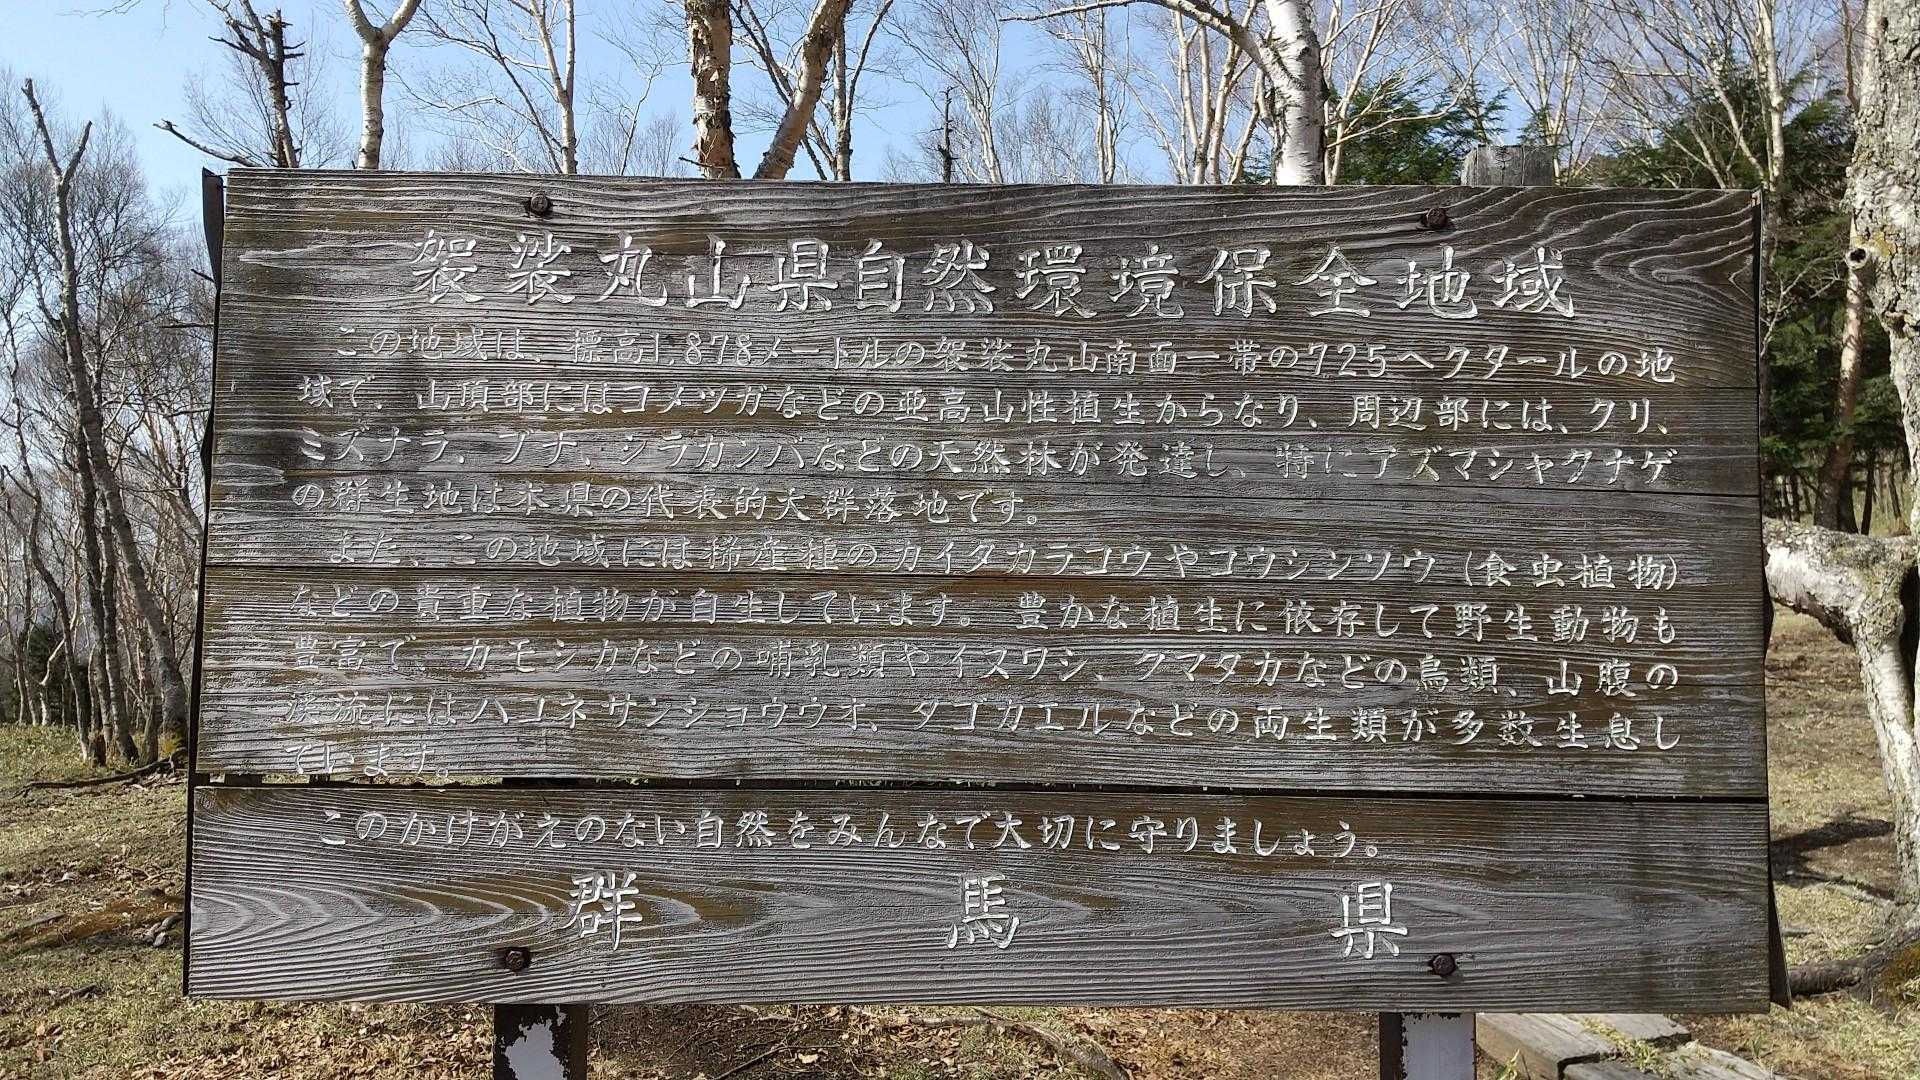 袈裟丸山県自然環境保全地域
この地域は、標高1,878メートルの袈裟丸山南面一帯の725ヘクタールの地
域で、山頂部にはコメツガなどの亜高山性植生からなり、周辺部には、クリ、
ミズナラ、ブナ、シラカンバなどの天然林が発達し、特にアズマシャクナゲ
の群生地は本県の代表的大群落地です。
また、この地域には稀産種のカイタカラコウやコウシンソウ(食虫植物)
などの貴重な植物が自生しています。豊かな植生に依存して野生動物も
豊富で、カモシカなどの哺乳類やイヌワシ、クマタカなどの鳥類、山腹の
渓流にはハコネサンショウウオ、タゴガエルなどの両生類が多数生息し
ています。
このかけがえのない自然をみんなで大切に守りましょう。
群馬県